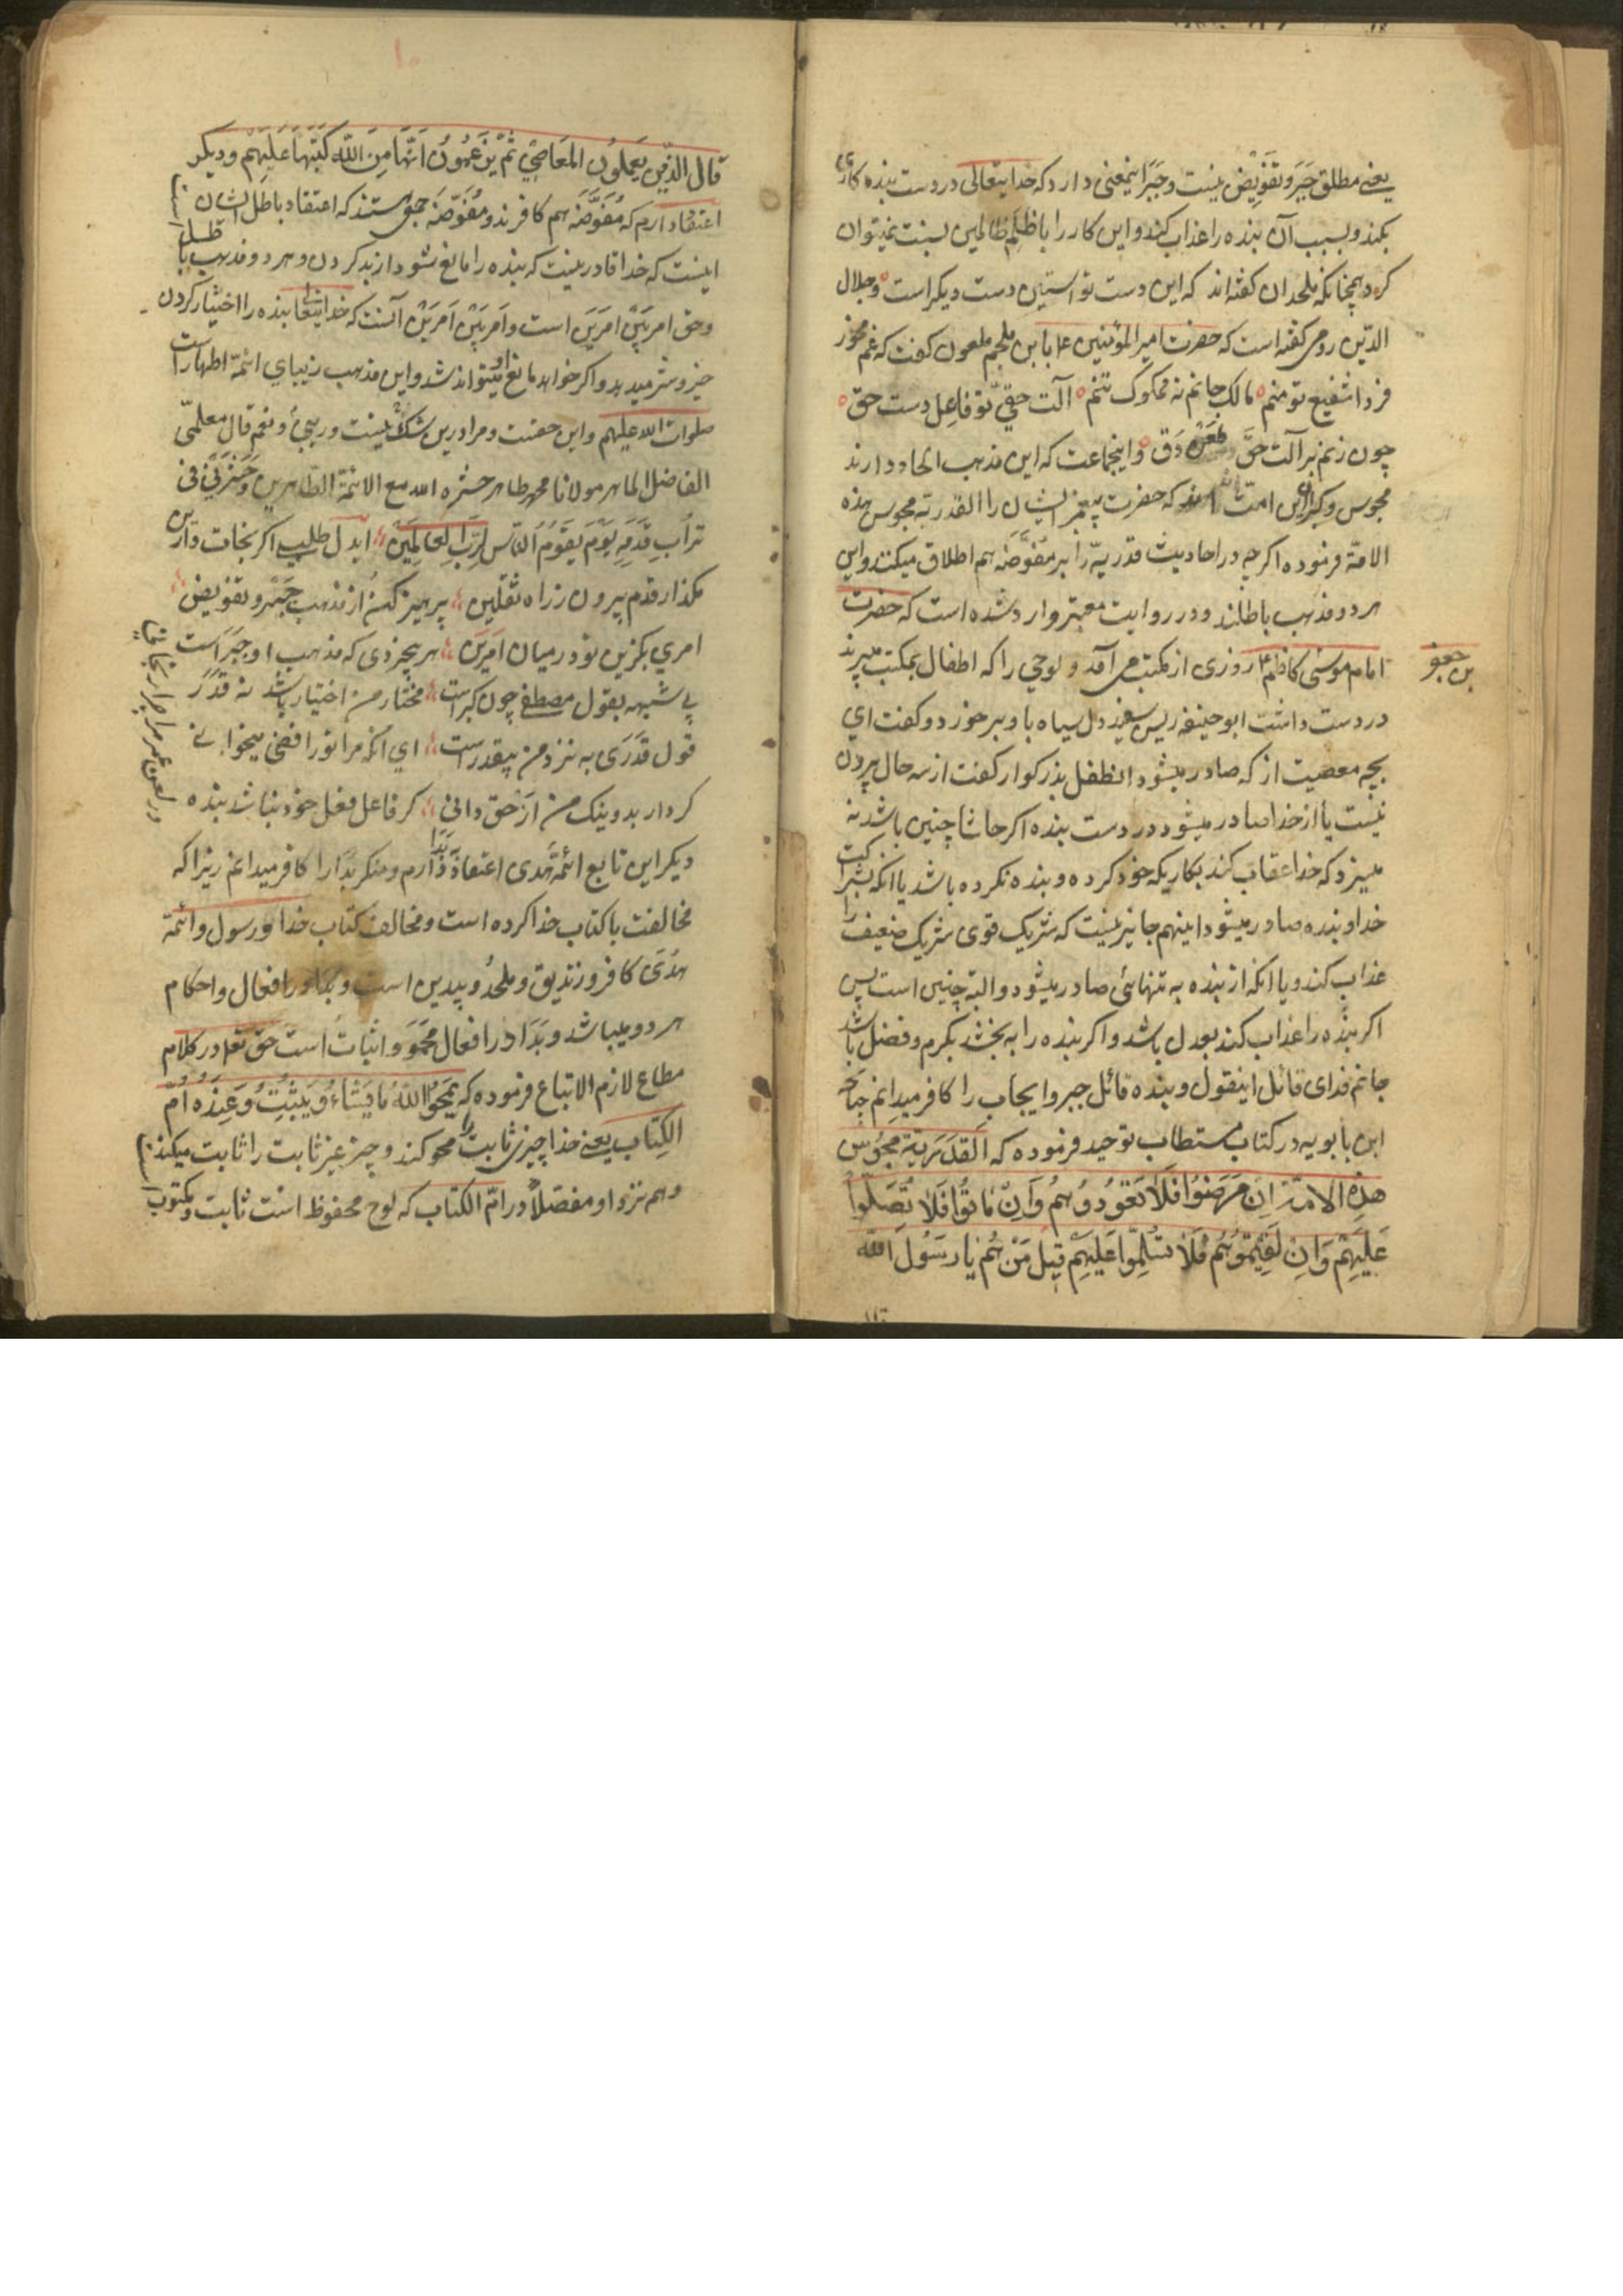 یعنے مطلق جَبر و تَفَویض نیست و جَبَر اینمعنی دارد که خدایتعالی در دست بنده کاری
بکند و بسبب آن بنده را عذاب کند و این کار را با ظلم ظالمین نسبت نمیتوان
کرد همچنانکه ملحدان گفته‌اند که این دست تو آستین دست دیگر است و جلال
الدّین رومی گفته است که حضرت امیر المؤمنین ۴ با بن ملجم ملعون گفت که غم مخور
فردا شفیع تو منم مالک جانم نه مملوک تنم آلت حقی تو فاعل دست حق
چون زنم بر آلت حق طعن و دق و اینجماعت که این مذهب الحاد دارند
مجوس و کبران این امت که حضرت پیغمبر ایشان را القدریّة مجوس هذه
الامّة فرموده اگرچه در احادیث قدریّه را بر مُفَوّضَه هم اطلاق میکنند و این
هر دو مذهب باطلند و در روایت معتبر وارد شده است که حضرت
امام موسٰی کاظم ۴ روزی از مکتب می آمد و لوحی را که اطفال بمکتب میبرند
بن جعفر
در دست داشت ابو حنیفه ریس سفید دل سیاه باو بر خورد و گفت ای
بچه معصیت از که صادر میشود انطفل بزرکوار گفت از سه حال بیرون
نیست یا از خدا صادر میشود در دست بنده اگر حاشا چنین باشد نه
میسزد که خدا عقاب کند بکاریکه خود کرده و بنده نکرده باشد یا انکه بشراکت
خدا و بنده صادر میشود اینهم جایز نیست که شریک قوی شریک ضعیف را
عذاب کند و یا انکه از بنده به تنهائی صادر میشود و البته چنین است پس
اگر بنده را عذاب کند بعدل باشد و اگر بنده را به بخشد بکرم و فضل باشد
جانم فدای قائل اینقول و بنده قائل جبر و ایجاب را کافر میدانم چنانچه
ابن بابویه در کتاب مستطاب توحید فرموده که القَدَرِیّة مَجوُسُ
هذِهِ الامّة اِن مَرَضوُا فَلاٰ تَعوُدوُهُم وَاِن مٰاتوُا فَلاٰ تُصَلّوا
عَلَیهِم وَاِن لَقیتُموُهُم فَلاٰ تُسَلِّموا عَلَیهِم قیل مَن هُم یا رَسوُل الله
قال الذّین یَعمِلوُن المَعاصی ثمّ یَزعَموُن اَنّها مِنَ الله کَتَبَها عَلَیهِم و دیگر
اعتقاد دارم که مُفَوّضَه هم کافرند و مُفَوّضَه جمعی هستند که اعتقاد باطل ایشان
اینست که خدا قادر نیست که بنده را مانع شود از بد کردن و هر دو مذهب باطل است
و حق امر بَین امرَین است و اَمر بَین اَمرَین آنست که خدایتعا بنده را اختیار کردن
خیر و شر میدهد و اگر خواهد مانع میتواند شد و این مذهب زیبای ائمّهٔ اطهار است
صلوات الله علیهم و این حقست و مرا درین شک نیست و ریبی و نعم قال معلّمی
الفاضل الماهر مولانا محمد طاهر حشره الله مع الائمّة الطّاهرین و حَشَرَنی فی
تُراب قَدَمِه یَوم یَقوُمُ النّاس لِرَبِّ العالَمین ایدل طلبی اگر نجات دارین
مگذار قدم بیرون ز راه ثقلین پرهیز کن از مذهب جَبر و تفویض
امری بگزین تو در میان امرَین هر بیخردی که مذهب او جَبر است
بی شبهه بقول مصطفی چون کبر است مختار من اختیار باشد نه قَدَر
قول قَدَری به نزد من بیقدر است ای انکه مرا تو رافضی میخوانی
در لعن عمر مرا چرا رنجانی
کردار بد و نیک من از حق دانی گر فاعل فعل خود نباشد بنده
دیگر این تابع ائمّهٔ هُدی اعتقاد بَدٰا دارم و منکر بَدٰا را کافر میدانم زیرا که
مخالفت با کتاب خدا کرده است و مخالف کتاب خدا و رسول و ائمّه
هُدَی کافر و زندیق و ملحد و بیدین است و بَدا در افعال و احکام
هر دو میباشد و بَدَا در افعال مَحو و اثبات است حق تعا در کلام
مطاع لازم الاتباع فرموده که یَمحوُا اللهُ مٰا یَشٰاءُ وَ یُثبِتُ وَ عِندَهُ اُمُّ
الکِتاب یعنے خدا چیزی ثابت را محو کند و چیز غیر ثابت را ثابت میکند
و هم نزد او مفصّلاً در امّ الکتاب که لوح محفوظ است ثابت و مکتوب است